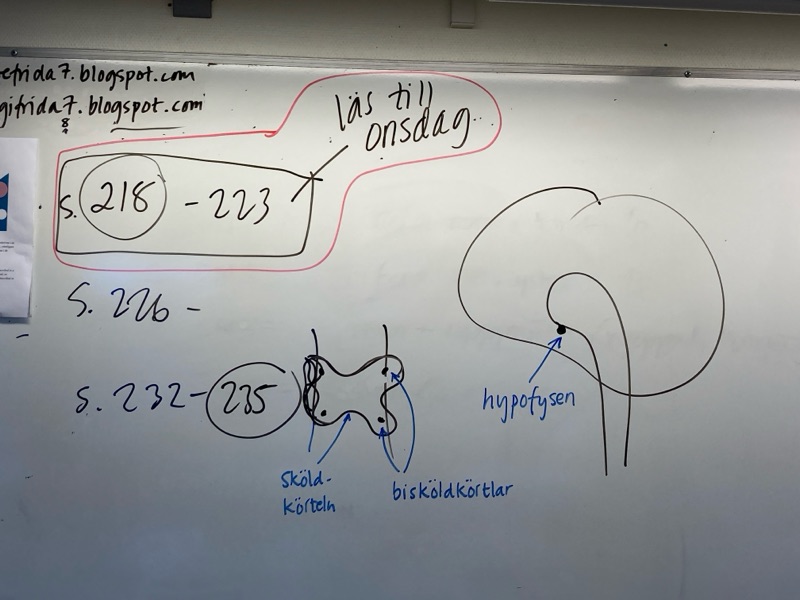 efrida7.blogspot.com
gifrida7.blogspot.com
8
läs till
onsdag
s. 218 - 223
s. 226 -
s. 232 - 235
hypofysen
Sköld-
körteln
bisköldkörtlar